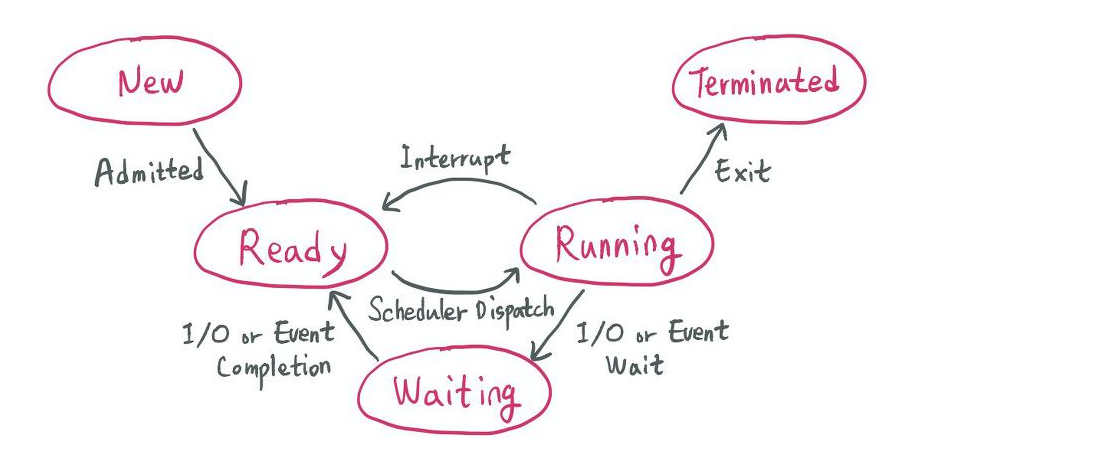 New
Terminated
Admitted
Interrupt
Exit
Ready
Running
Scheduler Dispatch
I/O or Event
Completion
I/O or Event
Wait
Waiting